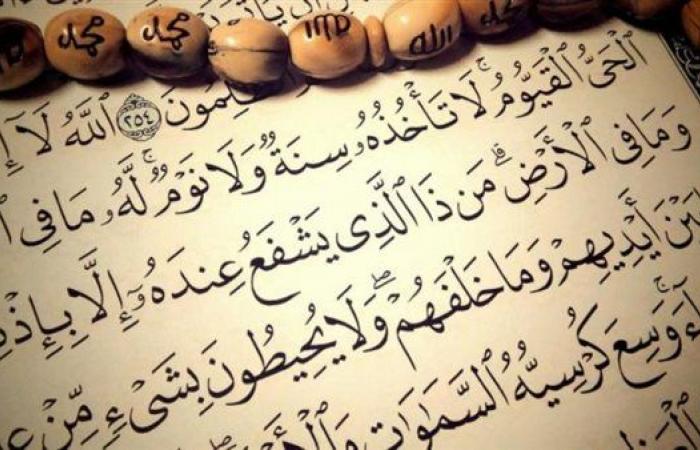 محمد محمد الله محمد
ـلِمُونَ ٢٥٤ ٱللَّهُ لَآ إِ
ٱلْحَىُّ ٱلْقَيُّومُ ۚ لَا تَأْخُذُهُۥ سِنَةٌ وَلَا نَوْمٌ ۚ لَّهُۥ مَا فِى ٱ
وَمَا فِى ٱلْأَرْضِ ۗ مَن ذَا ٱلَّذِى يَشْفَعُ عِندَهُۥٓ إِلَّا بِإِذْ
ـيْنَ أَيْدِيهِمْ وَمَا خَلْفَهُمْ ۖ وَلَا يُحِيطُونَ بِشَىْءٍ مِّنْ عِ
ءَ ۚ وَسِعَ كُرْسِيُّهُ ٱلسَّمَٰوَٰتِ وَٱلْأَرْ